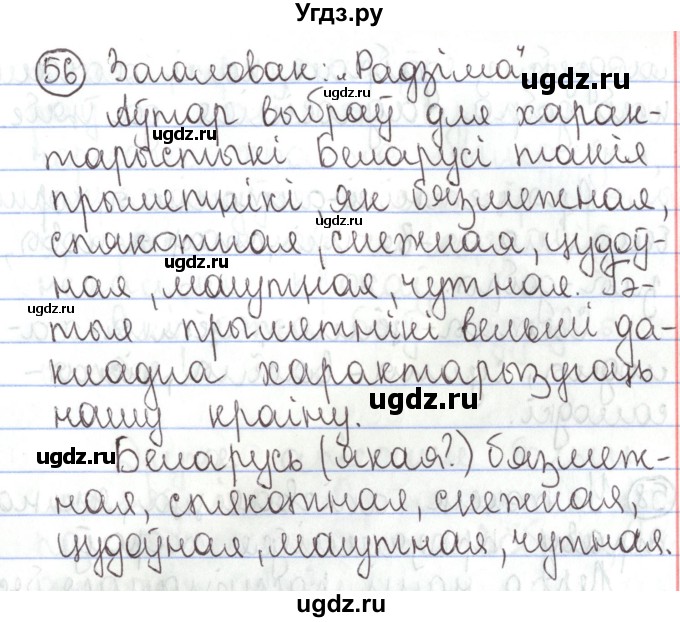 Угдз.ру
56 Загаловак: „Радзіма“
Аўтар выбраў для харак-
тарыстыкі Беларусі такія
прыметнікі як бязмежная,
спякотная, снежная, цудоў-
ная, магутная, чутная. Гэ-
тыя прыметнікі вельмі да-
кладна характарызуюць
нашу краіну.
Беларусь (якая?) бязмеж-
ная, спякотная, снежная,
цудоўная, магутная, чутная.
ugdz.ru
ugdz.ru
ugdz.ru
ugdz.ru
ugdz.ru
ugdz.ru
ugdz.ru
ugdz.ru
ugdz.ru
ugdz.ru
ugdz.ru